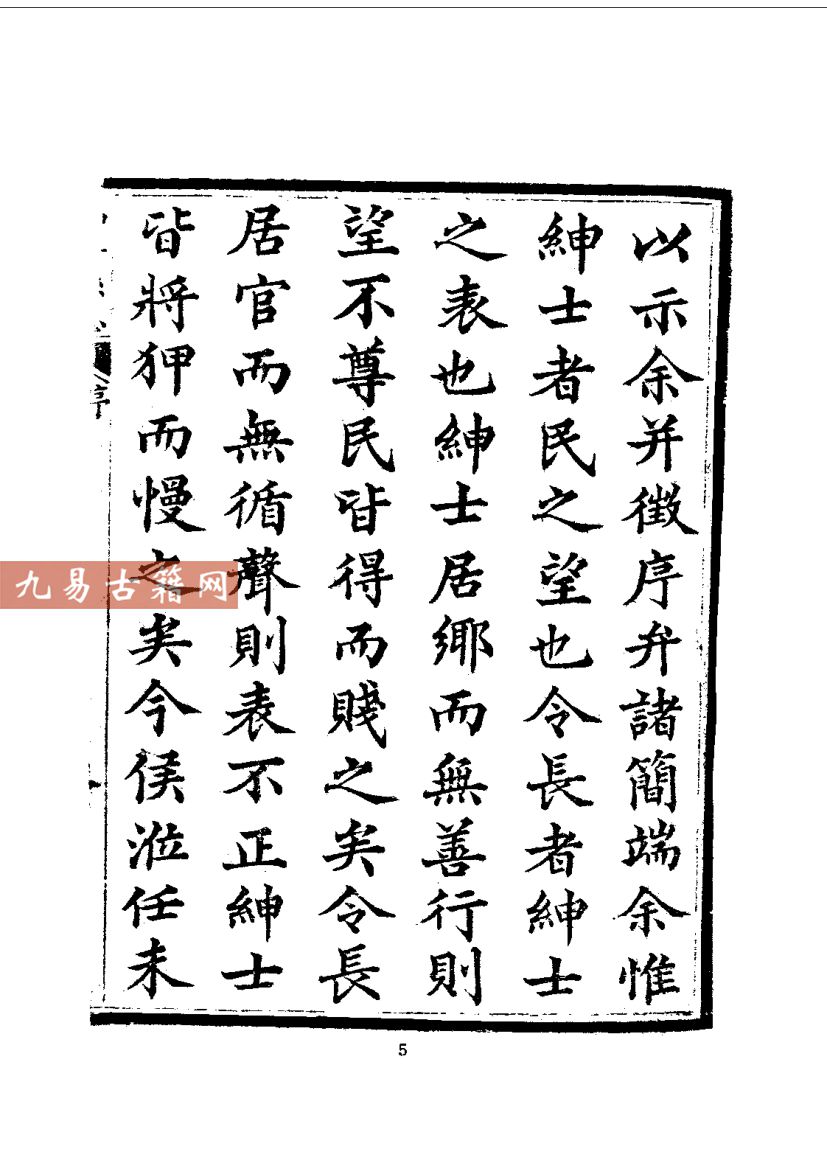 以示余并徵序弁諸簡端余惟
紳士者民之望也令長者紳士
之表也紳士居鄉而無善行則
望不尊民皆得而賤之矣令長
居官而無循聲則表不正紳士
皆將狎而慢之矣今侯涖任未
序
九易古籍网
5